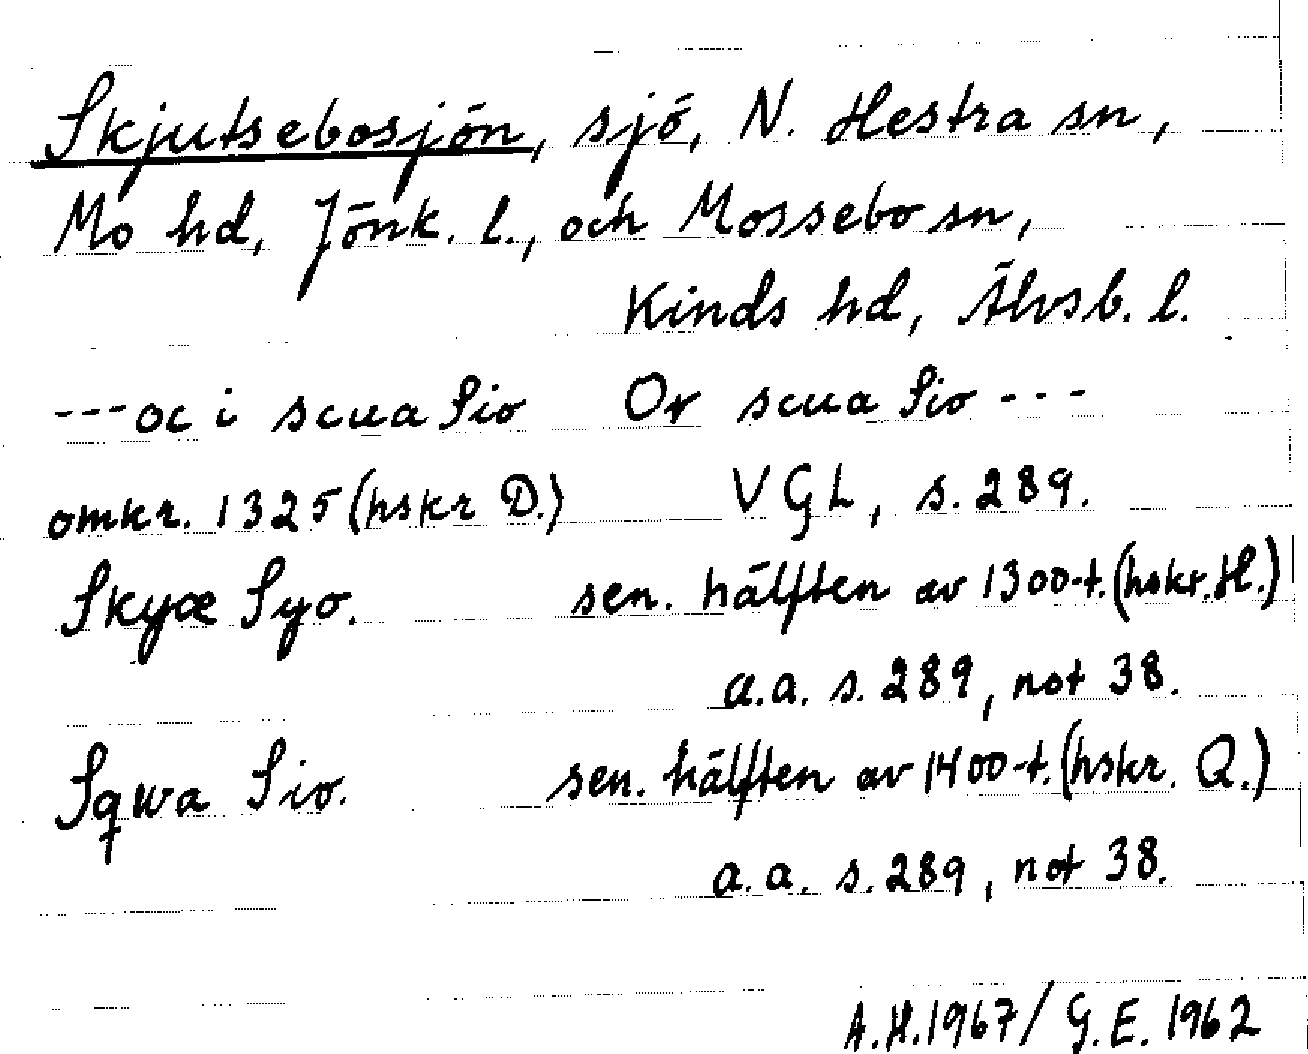 Skjutsebosjön, sjö, N. Hestra sn,
Mo hd, Jönk. l., och Mossebo sn,
Kinds hd, Älvsb. l.
---oc i scua Sio Or scua Sio ---
omkr. 1325 (hskr D.) VGL, s. 289.
Skyæ Syo. sen. hälften av 1300-t. (hskr. H.)
a.a. s. 289, not 38.
Sqwa Sio. sen. hälften av 1400-t. (hskr. Q.)
a.a. s. 289, not 38.
A.H. 1967/ G.E. 1962